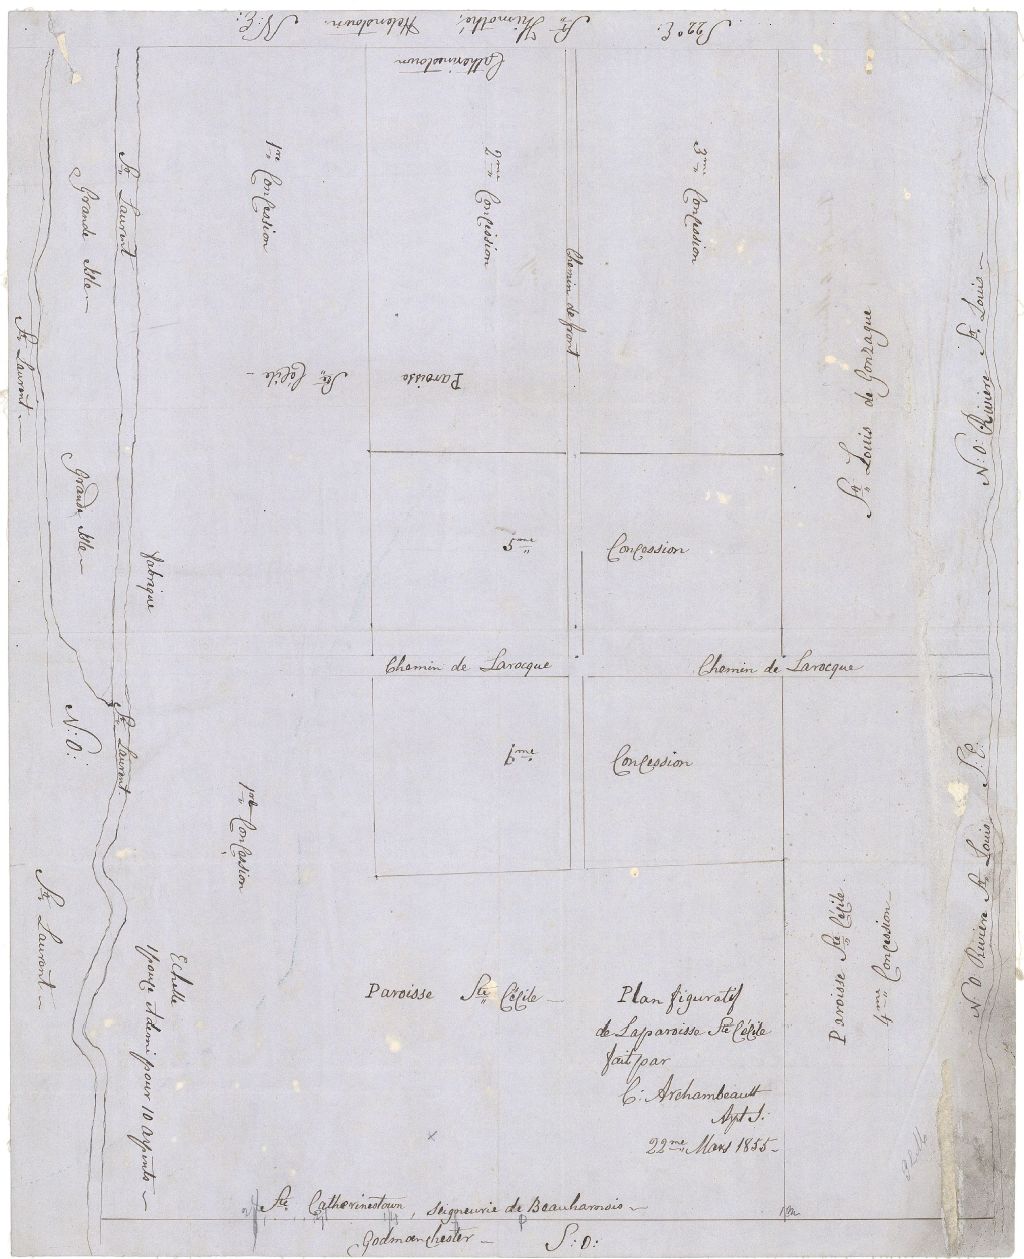 S 22° E:
Ste Thimothé,
Helenstown.
N: E:
Catherinestown
1re Concession
2me Concession
3me Concession
St. Laurent
Grande Isle
Chemin de front
St. Laurent
Ste Cécile
Paroisse
St. Louis de Gonzague
N: O: Rivière St. Louis
Grande Isle
fabrique
5me Concession
Chemin de Larocque
Chemin de Larocque
N: O:
St. Laurent
1re Concession
Concession
S: E:
N: O Rivière St. Louis
St. Laurent
Echelle
1 pouce et demi pour 10 arpents
Paroisse Ste Cécile
Paroisse Ste Cécile
4me Concession
Plan figuratif
de La paroisse Ste Cécile
fait par
C: Archambeault
Apt S:
22me Mars 1855
Ste Catherinestown, seigneurie de Beauharnois
Godmanchester
S: O: